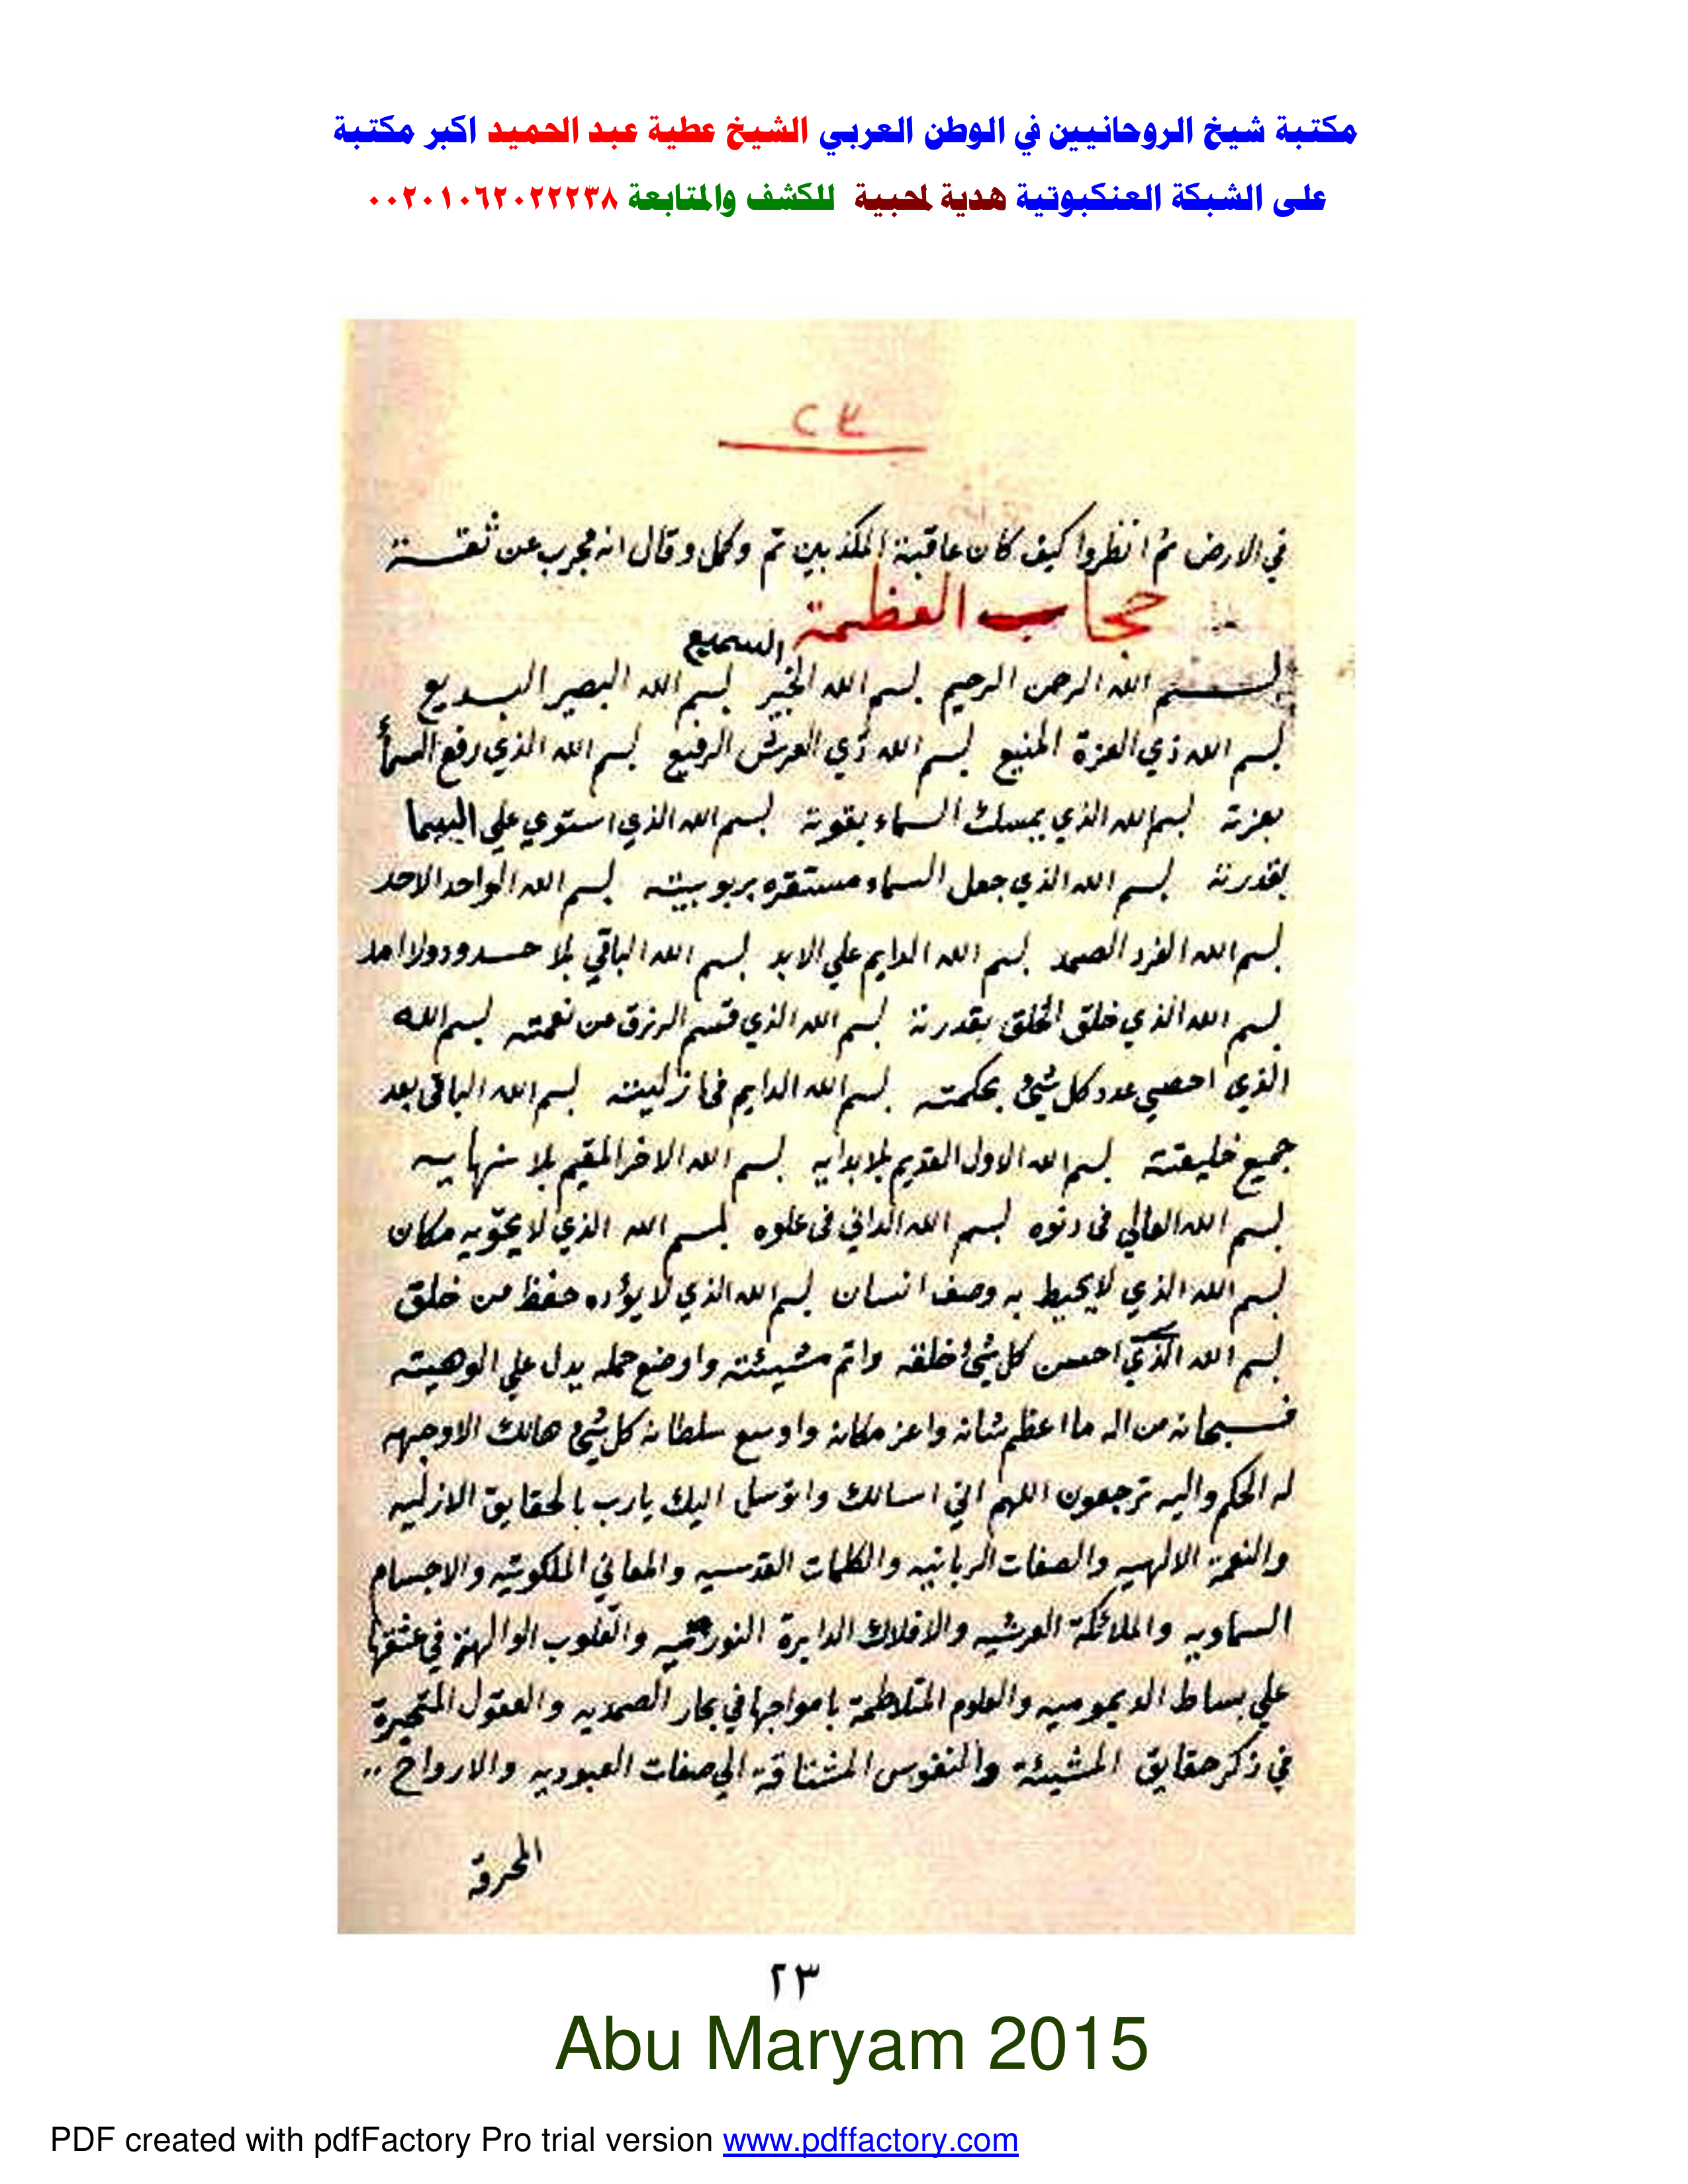 مكتبة شيخ الروحانيين في الوطن العربي الشيخ عطية عبد الحميد اكبر مكتبة
على الشبكة العنكبوتية هدية لمحبية للكشف والمتابعة ٠٠٢٠١٠٦٢٠٢٢٢٣٨
٢٣
في الارض ثم انظروا كيف كان عاقبة المكذبين تم وكمل وقال انه مجرب عن ثقة
حجاب العظمة
السميع
بسم الله الرحمن الرحيم بسم الله الخبير بسم الله البصير البديع
بسم الله ذي العزة المنيع بسم الله ذي العرش الرفيع بسم الله الذي رفع السمأ
بعزته بسم الله الذي يمسك السماء بقوته بسم الله الذي استوي علي
بقدرته بسم الله الذي جعل السماء مستقره بربوبيته بسم الله الواحد الاحد
بسم الله الفرد الصمد بسم الله الدايم علي الابد بسم الله الباقي بلا حدود ولا امد
بسم الله الذي خلق الخلق بقدرته بسم الله الذي قسم الرزق من نعمته بسم الله
الذي احصي عدد كل شيئ بحكمته بسم الله الدايم في ازليته بسم الله الباقي بعد
جميع خليقته بسم الله الاول القديم بلا بدايه بسم الله الاخر المقيم بلا نهايه
بسم الله العالي في دنوه بسم الله الداني في علوه بسم الله الذي لا يحويه مكان
بسم الله الذي لا يحيط به وصف انسان بسم الله الذي لا يؤده حفظ من خلق
بسم الله الذي احسن كل شيئ خلقه واتم مشيئته واوضع حمله يدل علي الوهيته
فسبحانه من اله ما اعظم شانه واعز مكانه واوسع سلطانه كل شيئ هالك الا وجهه
له الحكم واليه ترجعون اللهم اني اسالك واتوسل اليك يارب بالحقايق الازليه
والنعوت الالهيه والصفات الربانيه والكلمات القدسيه والمعاني الملكوتيه والاجسام
السماويه والملائكة العرشيه والافلاك الدايرة والقلوب الوالهة في عشقها
علي بساط الديموميه والعلوم المتلاطمة بامواجها في بحار الصمديه والعقول المتحيرة
في ذكر حقايق المشيئة والنفوس المشتاقة الي صفات العبوديه والارواح ..
المحرقة
٢٣
Abu Maryam 2015
PDF created with pdfFactory Pro trial version www.pdffactory.com